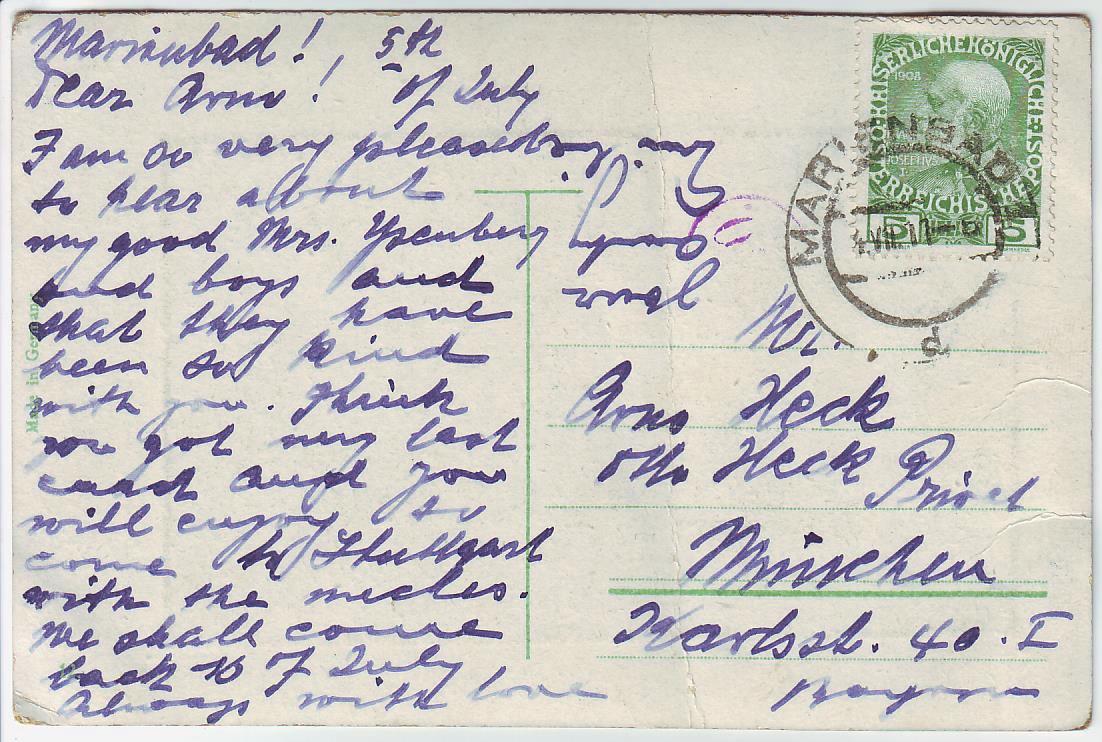 Marienbad!, 5th
Dear Arno! of July
I am so very pleased
to hear about
my good Mrs. Ysenberg
and boys and
that they have
been so kind
with you. I think
you got my last
card and you
will enjoy to
come to Stuttgart
with the uncles.
We shall come
back 10 of July
Always with love
your
Made in Germany
KAISERLICHE KÖNIGLICHE ÖSTERREICHISCHE POST
1908
5 5
MARIENBAD
VII 11
Mr.
Arno Heck
Otto Heck Privat
München
Karlsst. 40. I
Bayern